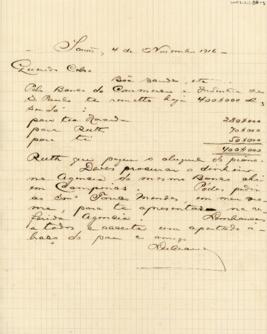 4 de Novembro 1916
Querido Celso
Boa saude, etc.
Pelo Banco do Commercio e Industria de
S. Paulo te remetto hoje 400$000 de
para tia 280$000
para Ruth 70$000
para ti 50$000
400$000
Ruth que pague o aluguel do piano
Deves procurar o dinheiro
na Agencia do mesmo Banco ahi
em Campinas. Podes pedir
ao Snr. Mendes em meu no
me, para te apresentar na re
ferida Agencia. Lembranças
a todos e acceita um apertado a
braço do pai e amigo